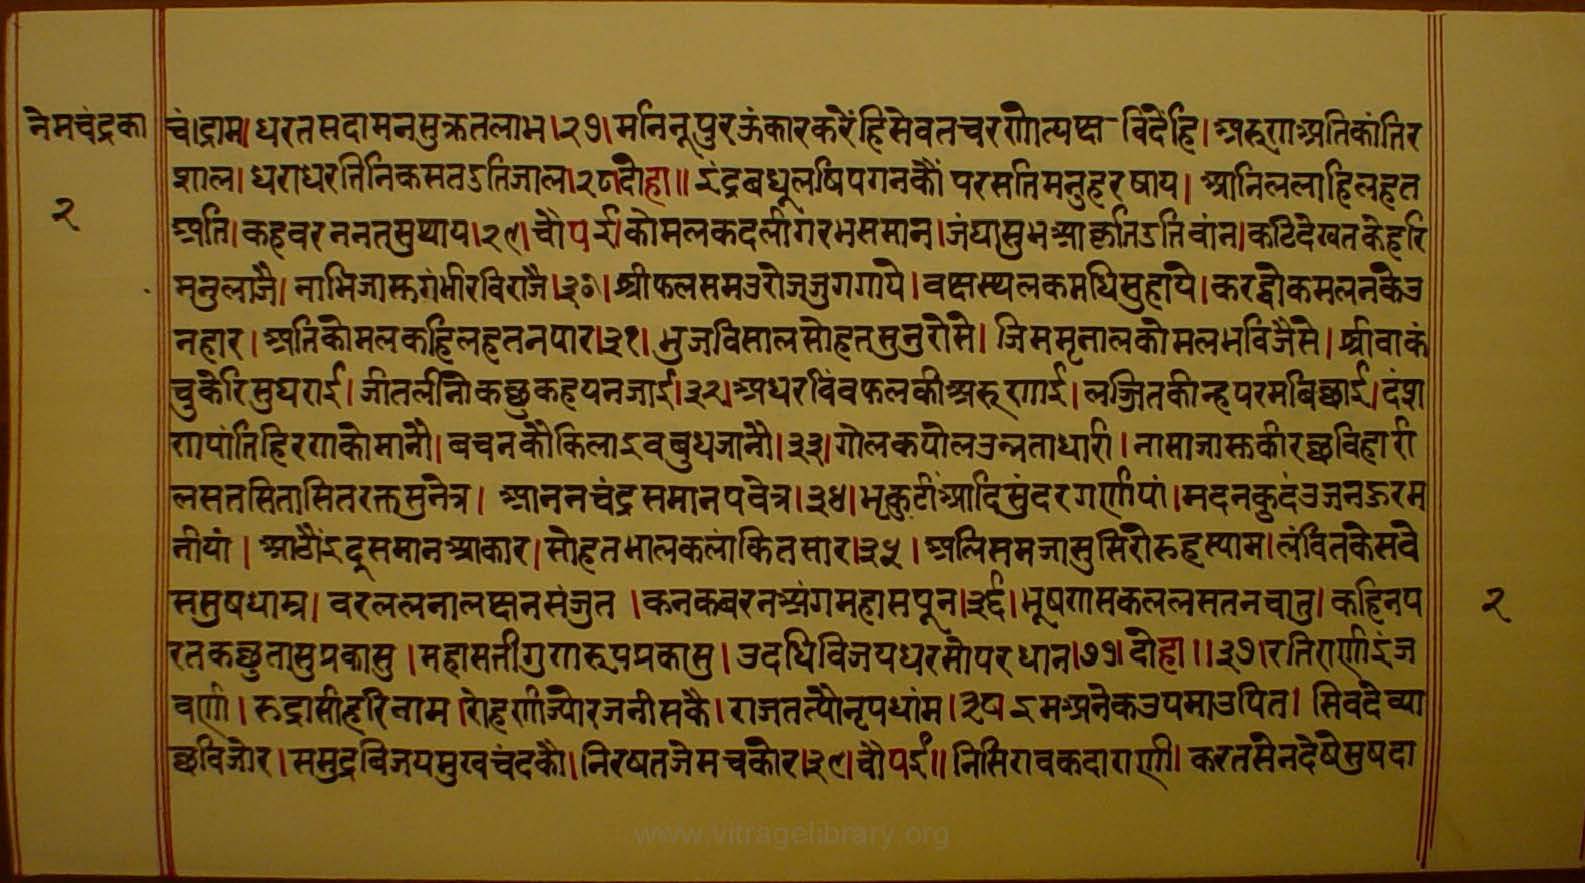 नेमचंद्रका
२
चं।द्राम। धरतसदामनसुक्रतलाभ।२७। मनिनूपुरऊंकारकरेंहिसेवतचरणोत्पक्ष विदेहि। अरूणअतिकांतिर
शाल। धराधरतिनिकसतऽतिजाल।२८।दोहा॥ इंद्रबधूलषिपगनकौं परसतिमनुहरषाय। आनिललाहिलहत
अति। कहवरननतसुथाय।२९। चौपई।कोमलकदलीगरभसमान।जंघासुभआर्क्रतिऽतिवांन।कटिदेखतकेहरि
मनुलाजै। नाभिजास्तगंभीरविराजै।३०। श्रीफलसमउरोजजुगगाये।वक्षस्थलकमधिसुहाये।करद्वोकमलनकेउ
नहार। अतिकोमलकहिलहतनपार।३१। भुजविसालसोहतसुनुरोसे। जिममृनालकोमलभविजैसे। श्रीवाकं
वुकेरिसुघराई। जीतलीनोकछुकहयनजाई।३२।अधरविंवफलकीअरूणाई। लज्जितकीन्हपरमबिछाई। दंश
णपांतिहिरणकोमानौ। बचनकौकिलाइवबुधजानौ।३३।गोलकपोलउन्नताधारी। नासाजास्तकीरछविहारी
लसतसितासितरक्तसुनेत्र। आननचंद्रसमानपवेत्र।३४।भृकुटीआदिसुंदरगर्णीयां।मदनकुदंउजनऊरम
नीयां। आठौंइदूसमानआकार।सोहतभालकलांकितसार।३५। अलिसमजासुसिरोरुहस्याम।लंवितकेसवे
ससुषधाम्र। वरललनालक्षनसंजुत। कनकबरनअंगमहासपून।३६। भूषणसकललसतनवातु। कहिनप
रतकछुतासुप्रकासु। महासतीगुणरूपप्रकासु। उदधिविजयधरमोपरधान।७७। दोहा।।३७।रतिराणीइंज
वर्णी। रुद्रासीहरिवाम।रोहर्णीज्योरजनीसकै। राजतत्यौनृपधांम।३८ इमअनेकउपमाउपित। सिवदेव्या
छविजोर।समुद्रबिजयमुखचंदकौ।निरषतजेमचकोर।३९। चौपई॥निसिरावकदाराणी। करतसेनदेषेसुषदा
२
www.vitragelibrary.org